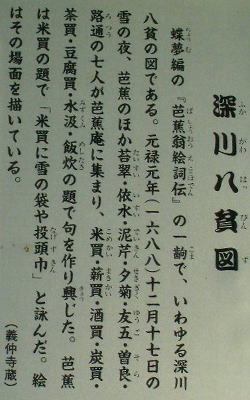 深川八貧図
蝶夢編の『芭蕉翁絵詞伝』の一齣で、いわゆる深川
八貧の図である。元禄元年(一六八八)十二月十七日の
雪の夜、芭蕉のほか苔翠・依水・泥芹・夕菊・友五・曽良・
路通の七人が芭蕉庵に集まり、米買・薪買・酒買・炭買・
茶買・豆腐買・水汲・飯炊の題で句を作り興じた。芭蕉
は米買の題で「米買に雪の袋や投頭巾」と詠んだ。絵
はその場面を描いている。
(義仲寺蔵)